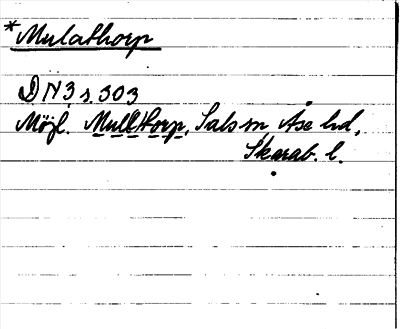 *Mulathorp
DN 3 s. 303
Möjl. Mulltorp, Sals sn Åse hd,
Skarab. l.